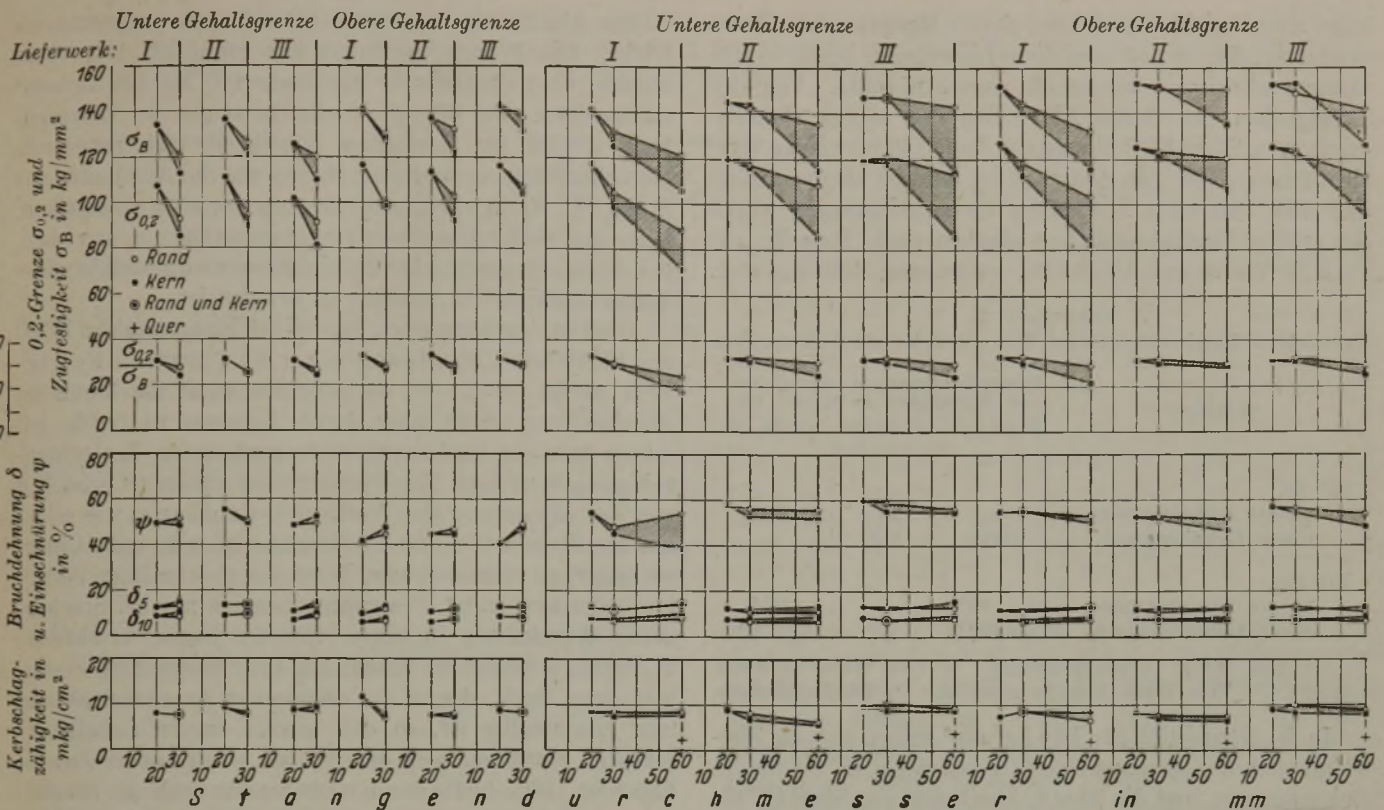 Untere Gehaltsgrenze Obere Gehaltsgrenze Untere Gehaltsgrenze Obere Gehaltsgrenze
Lieferwerk: I II III I II III I II III I II III
0,2-Grenze σ0,2 und
Zugfestigkeit σB in kg/mm²
160
140
120
100
80
60
40
20
0
σB
σ0,2
○ Rand
• Kern
◉ Rand und Kern
+ Quer
σ0,2
σB
Bruchdehnung δ
u. Einschnürung ψ
in %
80
60
40
20
0
ψ
δ5
δ10
Kerbschlag-
zähigkeit in
mkg/cm²
20
10
0
10 20 30 10 20 30 10 20 30 10 20 30 10 20 30 10 20 30 0 10 20 30 40 50 60 10 20 30 40 50 60 10 20 30 40 50 60 10 20 30 40 50 60 10 20 30 40 50 60 10 20 30 40 50 60
Stangendurchmesser in mm